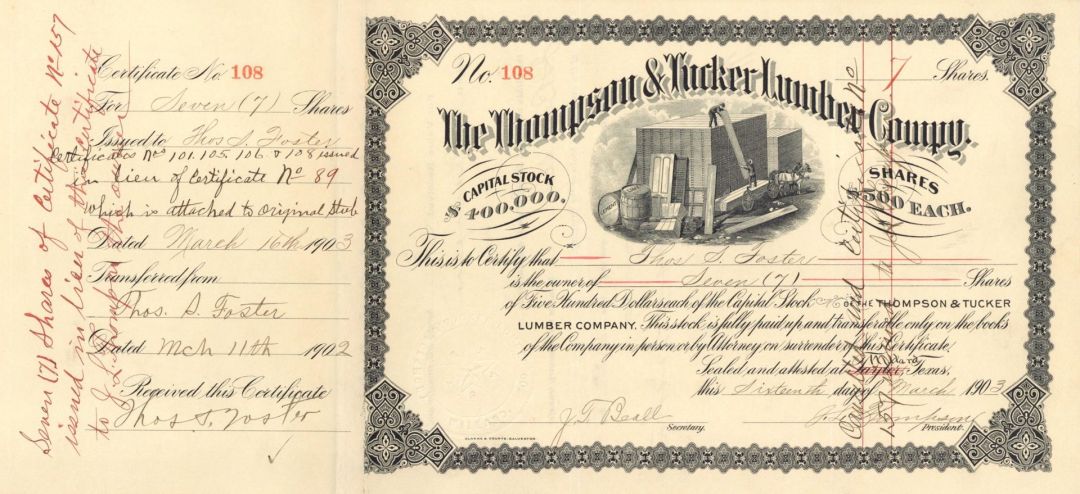 Certificate No. 108
For Seven (7) Shares
Issued to Thos. S. Foster
Certificates Nos 101.105.106. & 108 issued
in lieu of Certificate No 89
which is attached to original Stub
Dated March 16th 1903
Transferred from
Thos. S. Foster
Dated Mch 11th 1902
Received this Certificate
Thos. S. Foster
Seven (7) Shares of Certificate No 157
issued in lieu of this certificate
to J. Lewis Thompson
No. 108
7 Shares.
The Thompson & Tucker Lumber Compy.
CAPITAL STOCK
$ 400,000.
SHARES
$500 EACH.
This is to Certify that Thos. S. Foster
is the owner of Seven (7) Shares
of Five Hundred Dollars each of the Capital Stock OF THE THOMPSON & TUCKER
LUMBER COMPANY. This stock is fully paid up and transferable only on the books
of the Company in person or by Attorney on surrender of this Certificate.
Sealed and attested at Willard Texas,
this Sixteenth day of March 1903
J. T. Beall
Secretary.
President.
CLARKE & COURTS, GALVESTON
157 issued to